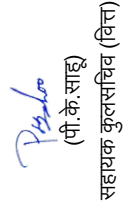 (पी.के.साहू)
सहायक कुलसचिव (वित्त)